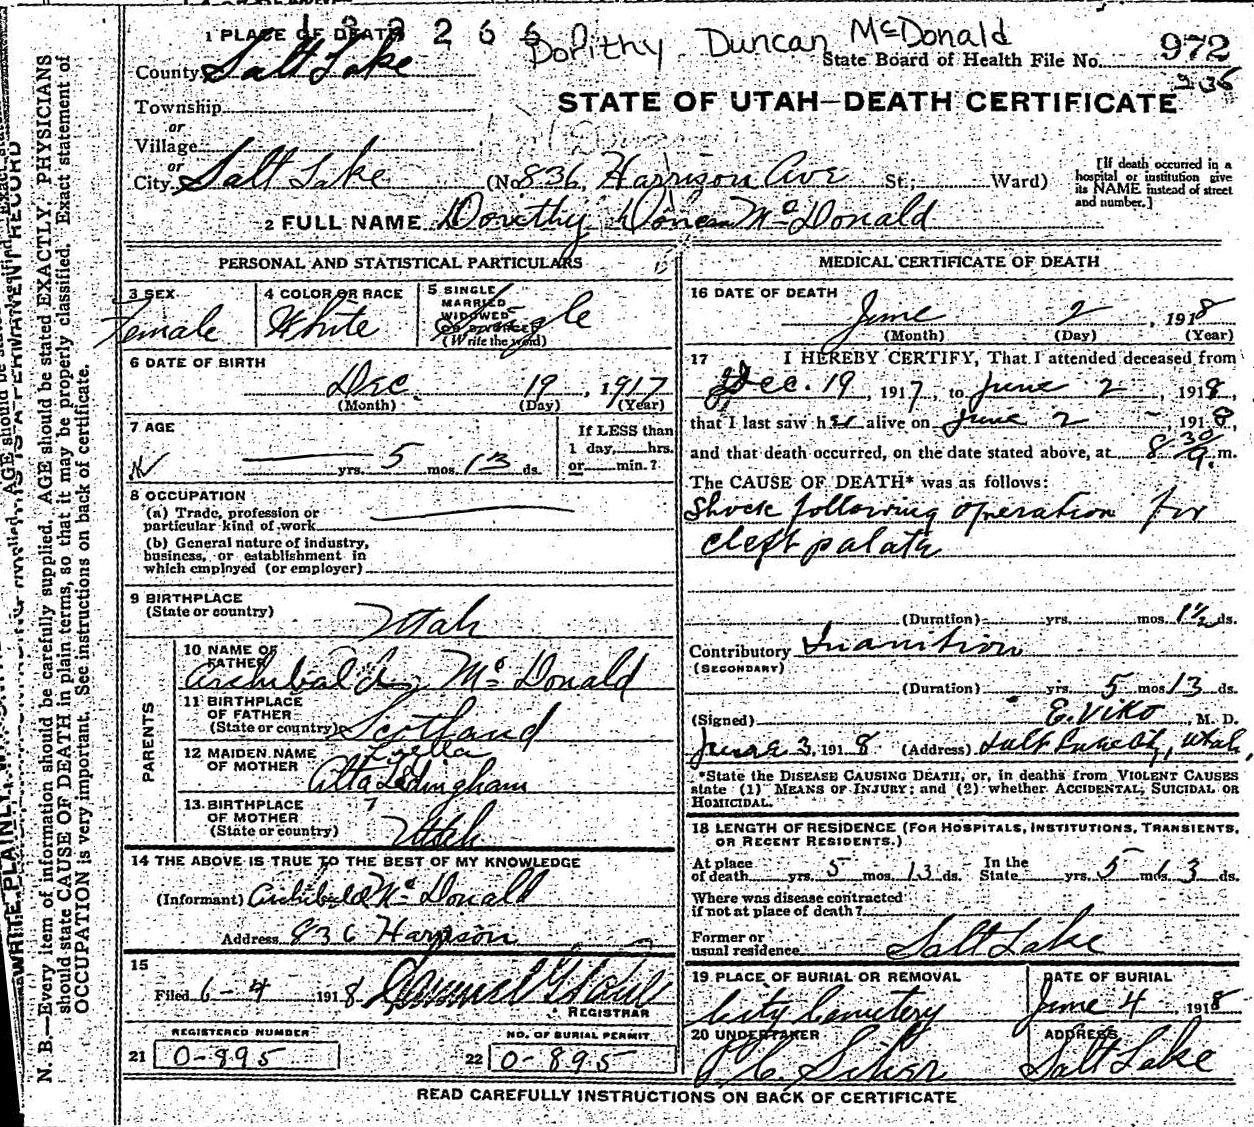 1 PLACE OF DEATH
Dorithy Duncan McDonald
State Board of Health File No. 972
236
County Salt Lake
STATE OF UTAH—DEATH CERTIFICATE
Township
or
Village
or
City Salt Lake (No 836, Harrison Ave St; Ward)
[If death occurred in a hospital or institution give its NAME instead of street and number.]
2 FULL NAME Dorithy Duncan McDonald
PERSONAL AND STATISTICAL PARTICULARS
3 SEX Female
4 COLOR OR RACE White
5 SINGLE MARRIED WIDOWED OR DIVORCED (Write the word) Single
6 DATE OF BIRTH
Dec 19, 1917
(Month) (Day) (Year)
7 AGE
yrs. 5 mos. 13 ds.
If LESS than 1 day, hrs. or min.?
8 OCCUPATION
(a) Trade, profession or particular kind of work
(b) General nature of industry, business, or establishment in which employed (or employer)
9 BIRTHPLACE
(State or country) Utah
PARENTS
10 NAME OF FATHER Archibald McDonald
11 BIRTHPLACE OF FATHER (State or country) Scotland
12 MAIDEN NAME OF MOTHER Alta Zella Ledingham
13 BIRTHPLACE OF MOTHER (State or country) Utah
14 THE ABOVE IS TRUE TO THE BEST OF MY KNOWLEDGE
(Informant) Archibald McDonald
Address 836 Harrison
15
Filed 6-4 1918
REGISTRAR
REGISTERED NUMBER
21 0-895
NO. OF BURIAL PERMIT
22 0-895
MEDICAL CERTIFICATE OF DEATH
16 DATE OF DEATH
June 2, 1918
(Month) (Day) (Year)
17 I HEREBY CERTIFY, That I attended deceased from
Dec. 19, 1917, to June 2, 1918,
that I last saw her alive on June 2, 1918,
and that death occurred, on the date stated above, at 8 30 m.
The CAUSE OF DEATH* was as follows:
Shock following operation for
cleft palate
(Duration) yrs. mos. 1½ ds.
Contributory Inanition
(SECONDARY)
(Duration) yrs. 5 mos 13 ds.
(Signed) E. Viko, M. D.
June 3, 1918 (Address) Salt Lake City, Utah
*State the DISEASE CAUSING DEATH, or, in deaths from VIOLENT CAUSES
state (1) MEANS OF INJURY; and (2) whether ACCIDENTAL, SUICIDAL OR
HOMICIDAL.
18 LENGTH OF RESIDENCE (FOR HOSPITALS, INSTITUTIONS, TRANSIENTS,
OR RECENT RESIDENTS.)
At place of death yrs. 5 mos. 13 ds. In the State yrs. 5 mos. 13 ds.
Where was disease contracted
if not at place of death?
Former or
usual residence Salt Lake
19 PLACE OF BURIAL OR REMOVAL City Cemetery
DATE OF BURIAL June 4 1918
20 UNDERTAKER
ADDRESS Salt Lake
READ CAREFULLY INSTRUCTIONS ON BACK OF CERTIFICATE
N. B.—Every item of information should be carefully supplied. AGE should be stated EXACTLY. PHYSICIANS
should state CAUSE OF DEATH in plain terms, so that it may be properly classified. Exact statement of
OCCUPATION is very important. See instructions on back of certificate.